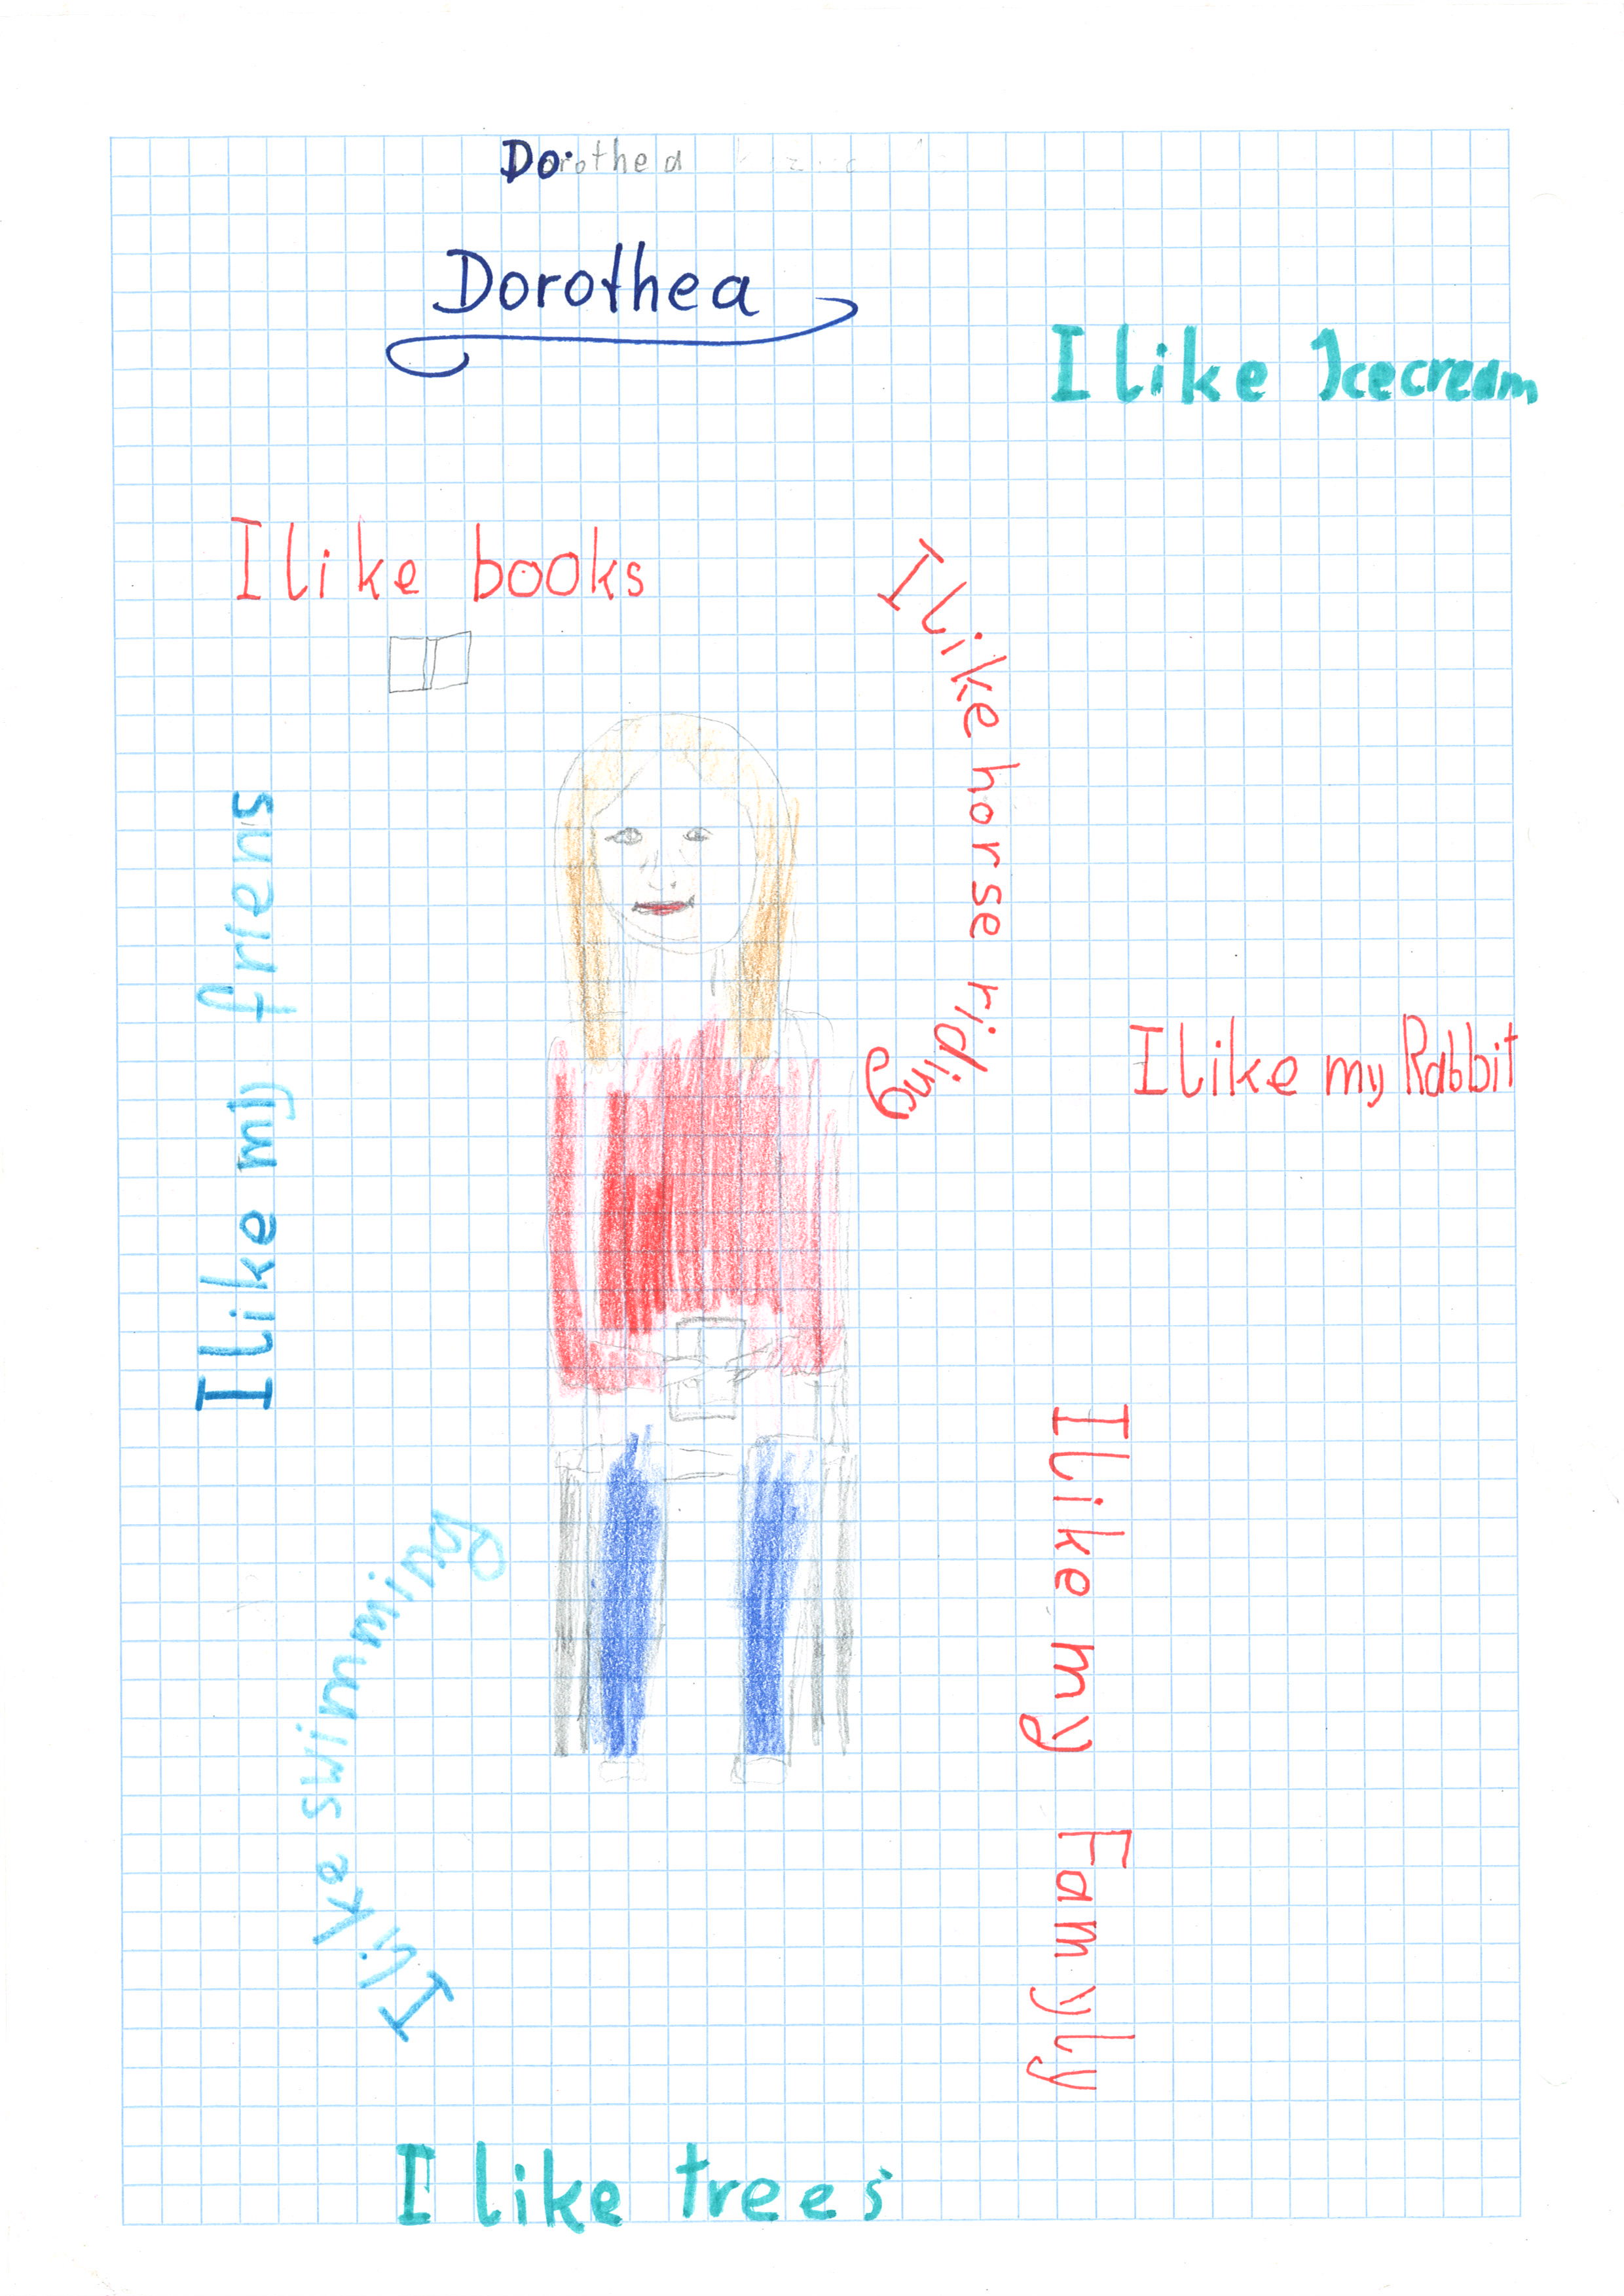 Dorothea
Dorothea
I like Icecream
I like books
I like horse riding
I like my friens
I like my Rabbit
I like my Famyly
I like swimming
I like trees